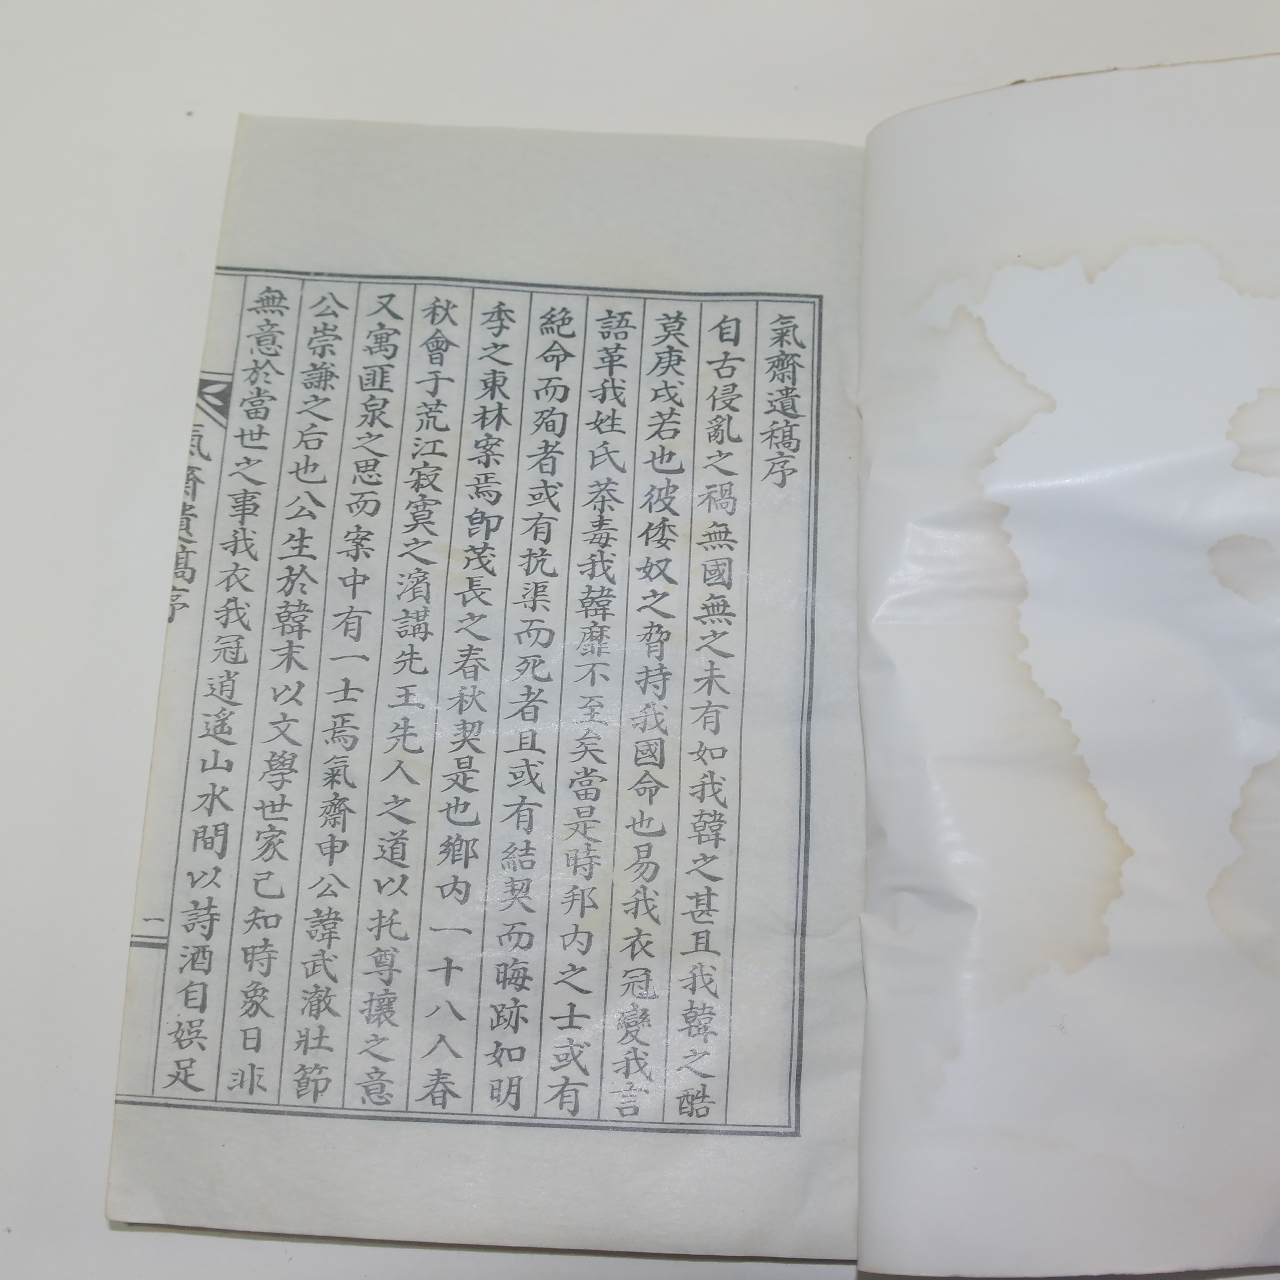 氣齋遺稿序
自古侵亂之禍無國無之未有如我韓之甚且我韓之酷
莫庚戌若也彼倭奴之脅持我國命也易我衣冠變我言
語革我姓氏荼毒我韓靡不至矣當是時邦內之士或有
絶命而殉者或有抗渠而死者且或有結契而晦跡如明
季之東林案焉卽茂長之春秋契是也鄉內一十八人春
秋會于荒江寂寞之濱講先王先人之道以托尊攘之意
又寓匪泉之思而案中有一士焉氣齋申公諱武澈壯節
公崇謙之后也公生於韓末以文學世家己知時象日非
無意於當世之事我衣我冠逍遙山水間以詩酒自娛足
氣齋遺稿序
一